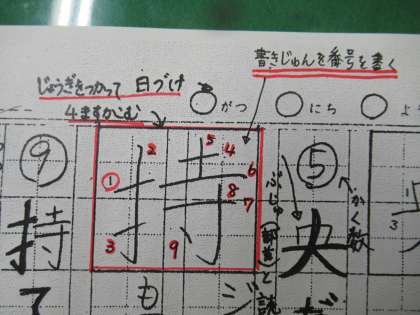 書きじゅんを番号を書く
じょうぎをつかって 日づけ
4ますかこむ
がつ
にち
よ
⑤
かく数
央
⑨
持
持
1
2
3
4
5
6
7
8
9
も
3